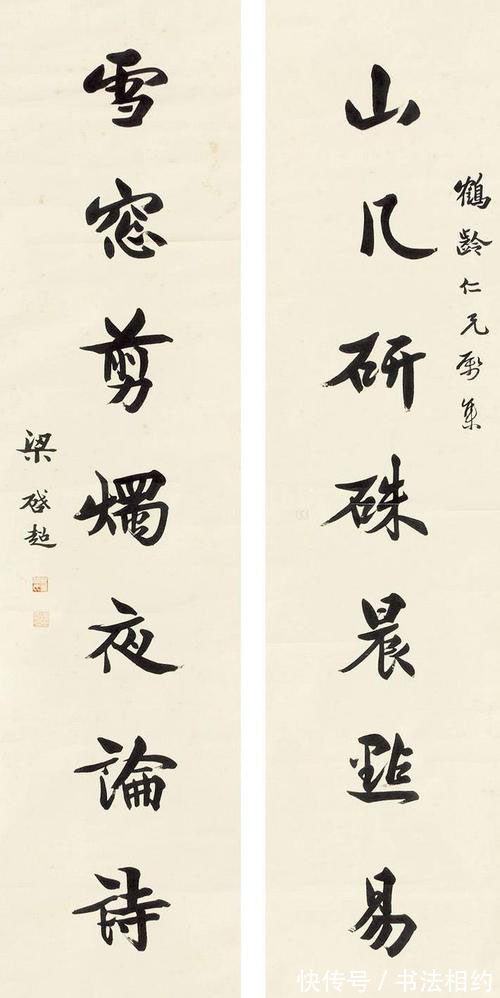 山几研硃晨點易
鶴齡仁兄屬集
雪窓剪燭夜論詩
梁啓超
快传号 / 书法相约